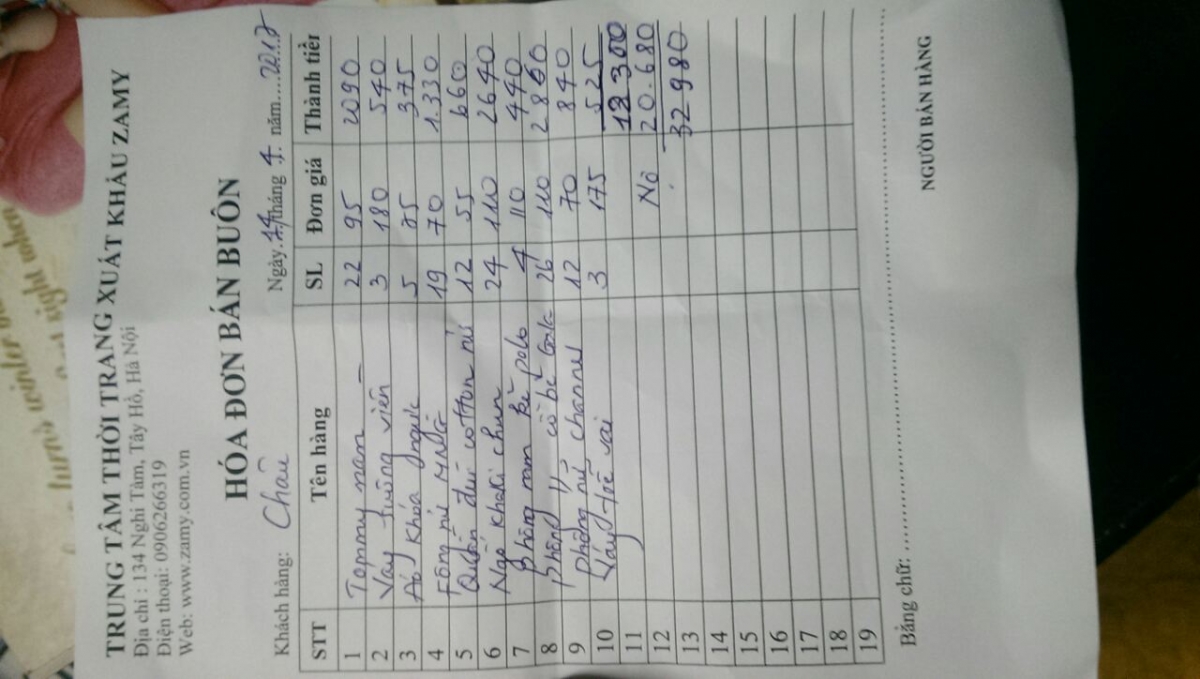 TRUNG TÂM THỜI TRANG XUẤT KHẨU ZAMY
Địa chỉ : 134 Nghi Tàm, Tây Hồ, Hà Nội
Điện thoại: 0906266319
Web: www.zamy.com.vn
HÓA ĐƠN BÁN BUÔN
Khách hàng: Châu Ngày 24 tháng 4 năm 2017
STT Tên hàng SL Đơn giá Thành tiền
1 Tommy nam 22 95 2090
2 Váy tường viền 3 180 540
3 Áo khóa ngực 5 75 375
4 nữ 19 70 1.330
5 Quần đùi cotton nữ 12 55 660
6 Ngố khaki chun 24 110 2640
7 phông nam kẻ polo 4 110 440
8 phông cổ bẻ 26 110 2860
9 phông nữ channel 12 70 840
10 Váy trễ vai 3 175 525
11 12 300
12 Nợ 20.680
13 32 980
14
15
16
17
18
19
Bằng chữ:
NGƯỜI BÁN HÀNG
turns winter